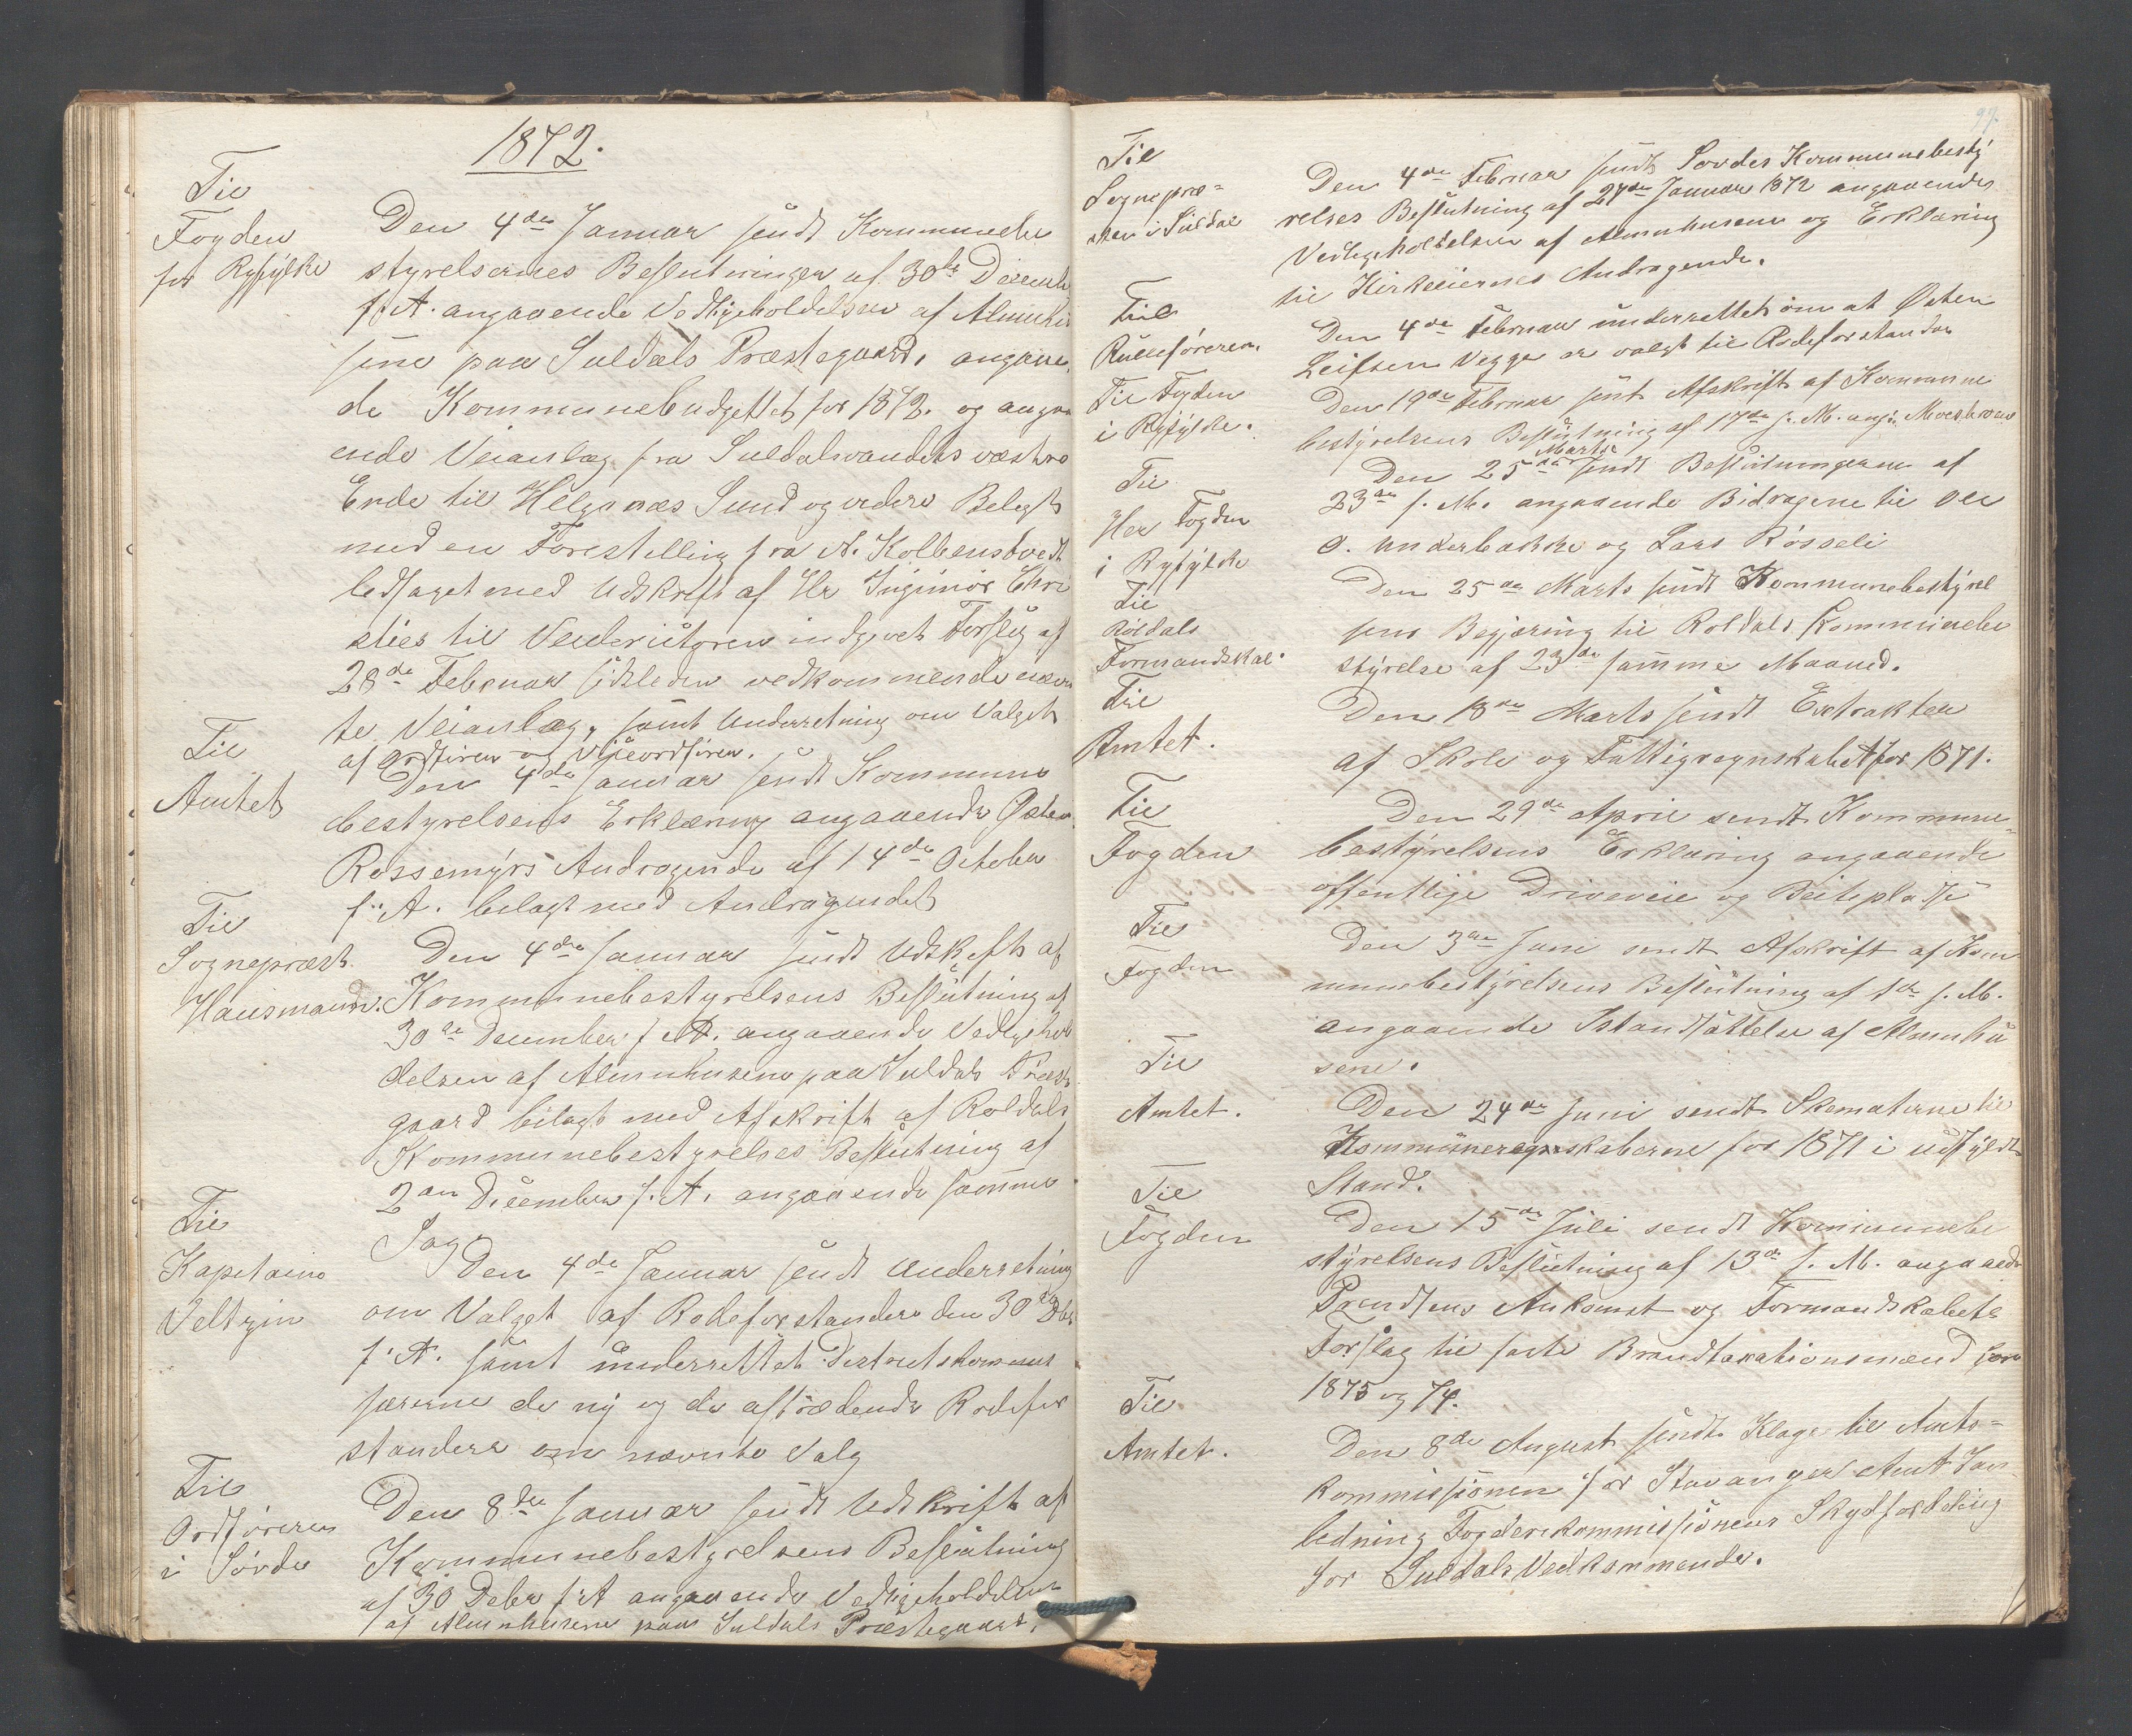 1872.
Til
Fogden
for Ryfylke
Den 4de Januar sendt Kommunebe
styrelsernes Beslutninger af 30te Decemb
f. A. angaaende Vedligeholdelsen af Almuehu
sene paa Suldals Præstegaard, angaaen
de Kommunebudgettet for 1872. og angaa
ende Veianlæg fra Suldalsvandets vestre
Ende til Helganæs Sund og videre Belagt
med en Forestilling fra A. Kolbenstvedt
ledsaget med Udskrift af Hr Ingeniör
til indgivet Forslag af
28de Februar sidstleden vedkommende næv
te Veianlæg, samt Underretning om Valget
af Ordförer og Viceordförer.
Til
Amtet
Den 4de Januar sendt Kommune
bestyrelsens Erklæring angaaende Østen
Rossemyrs Andragende af 14de October
f. A. belagt med Andragendet
Til
Sognepræst
Hausmann.
Den 4de Januar sendt Udskrift af
Kommunebestyrelsens Beslutning af
30te December f. A. angaaende Vedligehol
delsen af Almuehusene paa Suldals Præste
gaard bilagt med Afskrift af Roldals
Kommunebestyrelses Beslutning af
2den December f. A. angaaende samme
Sag.
Til
Kaptaine
Veltzin
Den 4de Januar sendt Underretning
om Valget af Rodeforstandere den 30te Dbr
f. A. samt underrettet Distriktskommis
særerne de ny og de aftrædende Rodefor
standere om nævnte Valg
Til
Ordföreren
i Sövde
Den 8de Januar sendt Udskrift af
Kommunebestyrelsens Beslutning
af 30 Debr f. A angaaende Vedligeholdelsen
af Almuehusene paa Suldals Præstegaard.
97.
Til
Sognepræ=
sten i Suldal
Den 4de Februar sendt Sovdes Kommunebesty
relses Beslutning af 27de Januar 1872 angaaendes
Vedligeholdelsen af Almuehusene og Erklæring
til Kirkeeiernes Andragende.
Til
Rulleföreren.
Den 4de Februar underrettet om at Østen
Leifsen Vegge er valgt til Rodeforstander
Til Fogden
i Ryfylke.
Den 19de Februar sent Afskrift af Kommune
bestyrelsens Beslutning af 17de s. M. ang.
Til
Her Fogden
i Ryfylke
Marts
Den 25de sendt Beslutningerne af
23de s. M. angaaende Bidragene til Ole
O. Underbakke og Lars Rösseli
Til
Röldals
Formandskal.
Den 25de Marts sendt Kommunebestyrel
sens Begjæring til Roldals Kommunebe
styrelse af 23de samme Maaned.
Til
Amtet.
Den 18de Marts sendt Extrakten
af Skole og Fattigregnskabet for 1871.
Til
Fogden
Den 29de April sendt Kommune=
bestyrelsens Erklæring angaaende
offentlige Driveveie og Beitepladse
Til
Fogden
Den 3de Juni sendt Afskrift af Kom
munebestyrelsens Beslutning af 1ste s. M.
angaaende Istandsættelse af Almuehu
sene.
Til
Amtet.
Den 24de Juni sendt Skematerne til
Kommuneregnskaberne for 1871 i udfyldt
Stand.
Til
Fogden
Den 15de Juli sendt Kommunebe
styrelsens Beslutning af 13de s. M. angaaede
Ankomst og Formandskabets
Forslag til faste Brandtaxationsmænd for
1873 og 74.
Til
Amtet.
Den 8de August sendt Klage til Amts=
kommissionen for Stavanger Amt
ledning Fogderikommissionens Skydsfordeling
for Suldals Vedkommende.